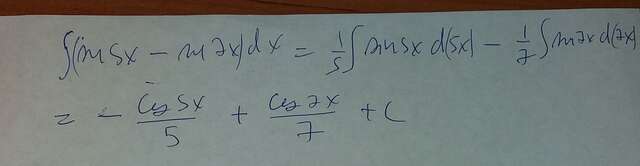 ∫(sin 5x − sin 7x)dx = 1/5 ∫ sin 5x d(5x) − 1/7 ∫ sin 7x d(7x)
= − cos 5x / 5 + cos 7x / 7 + C